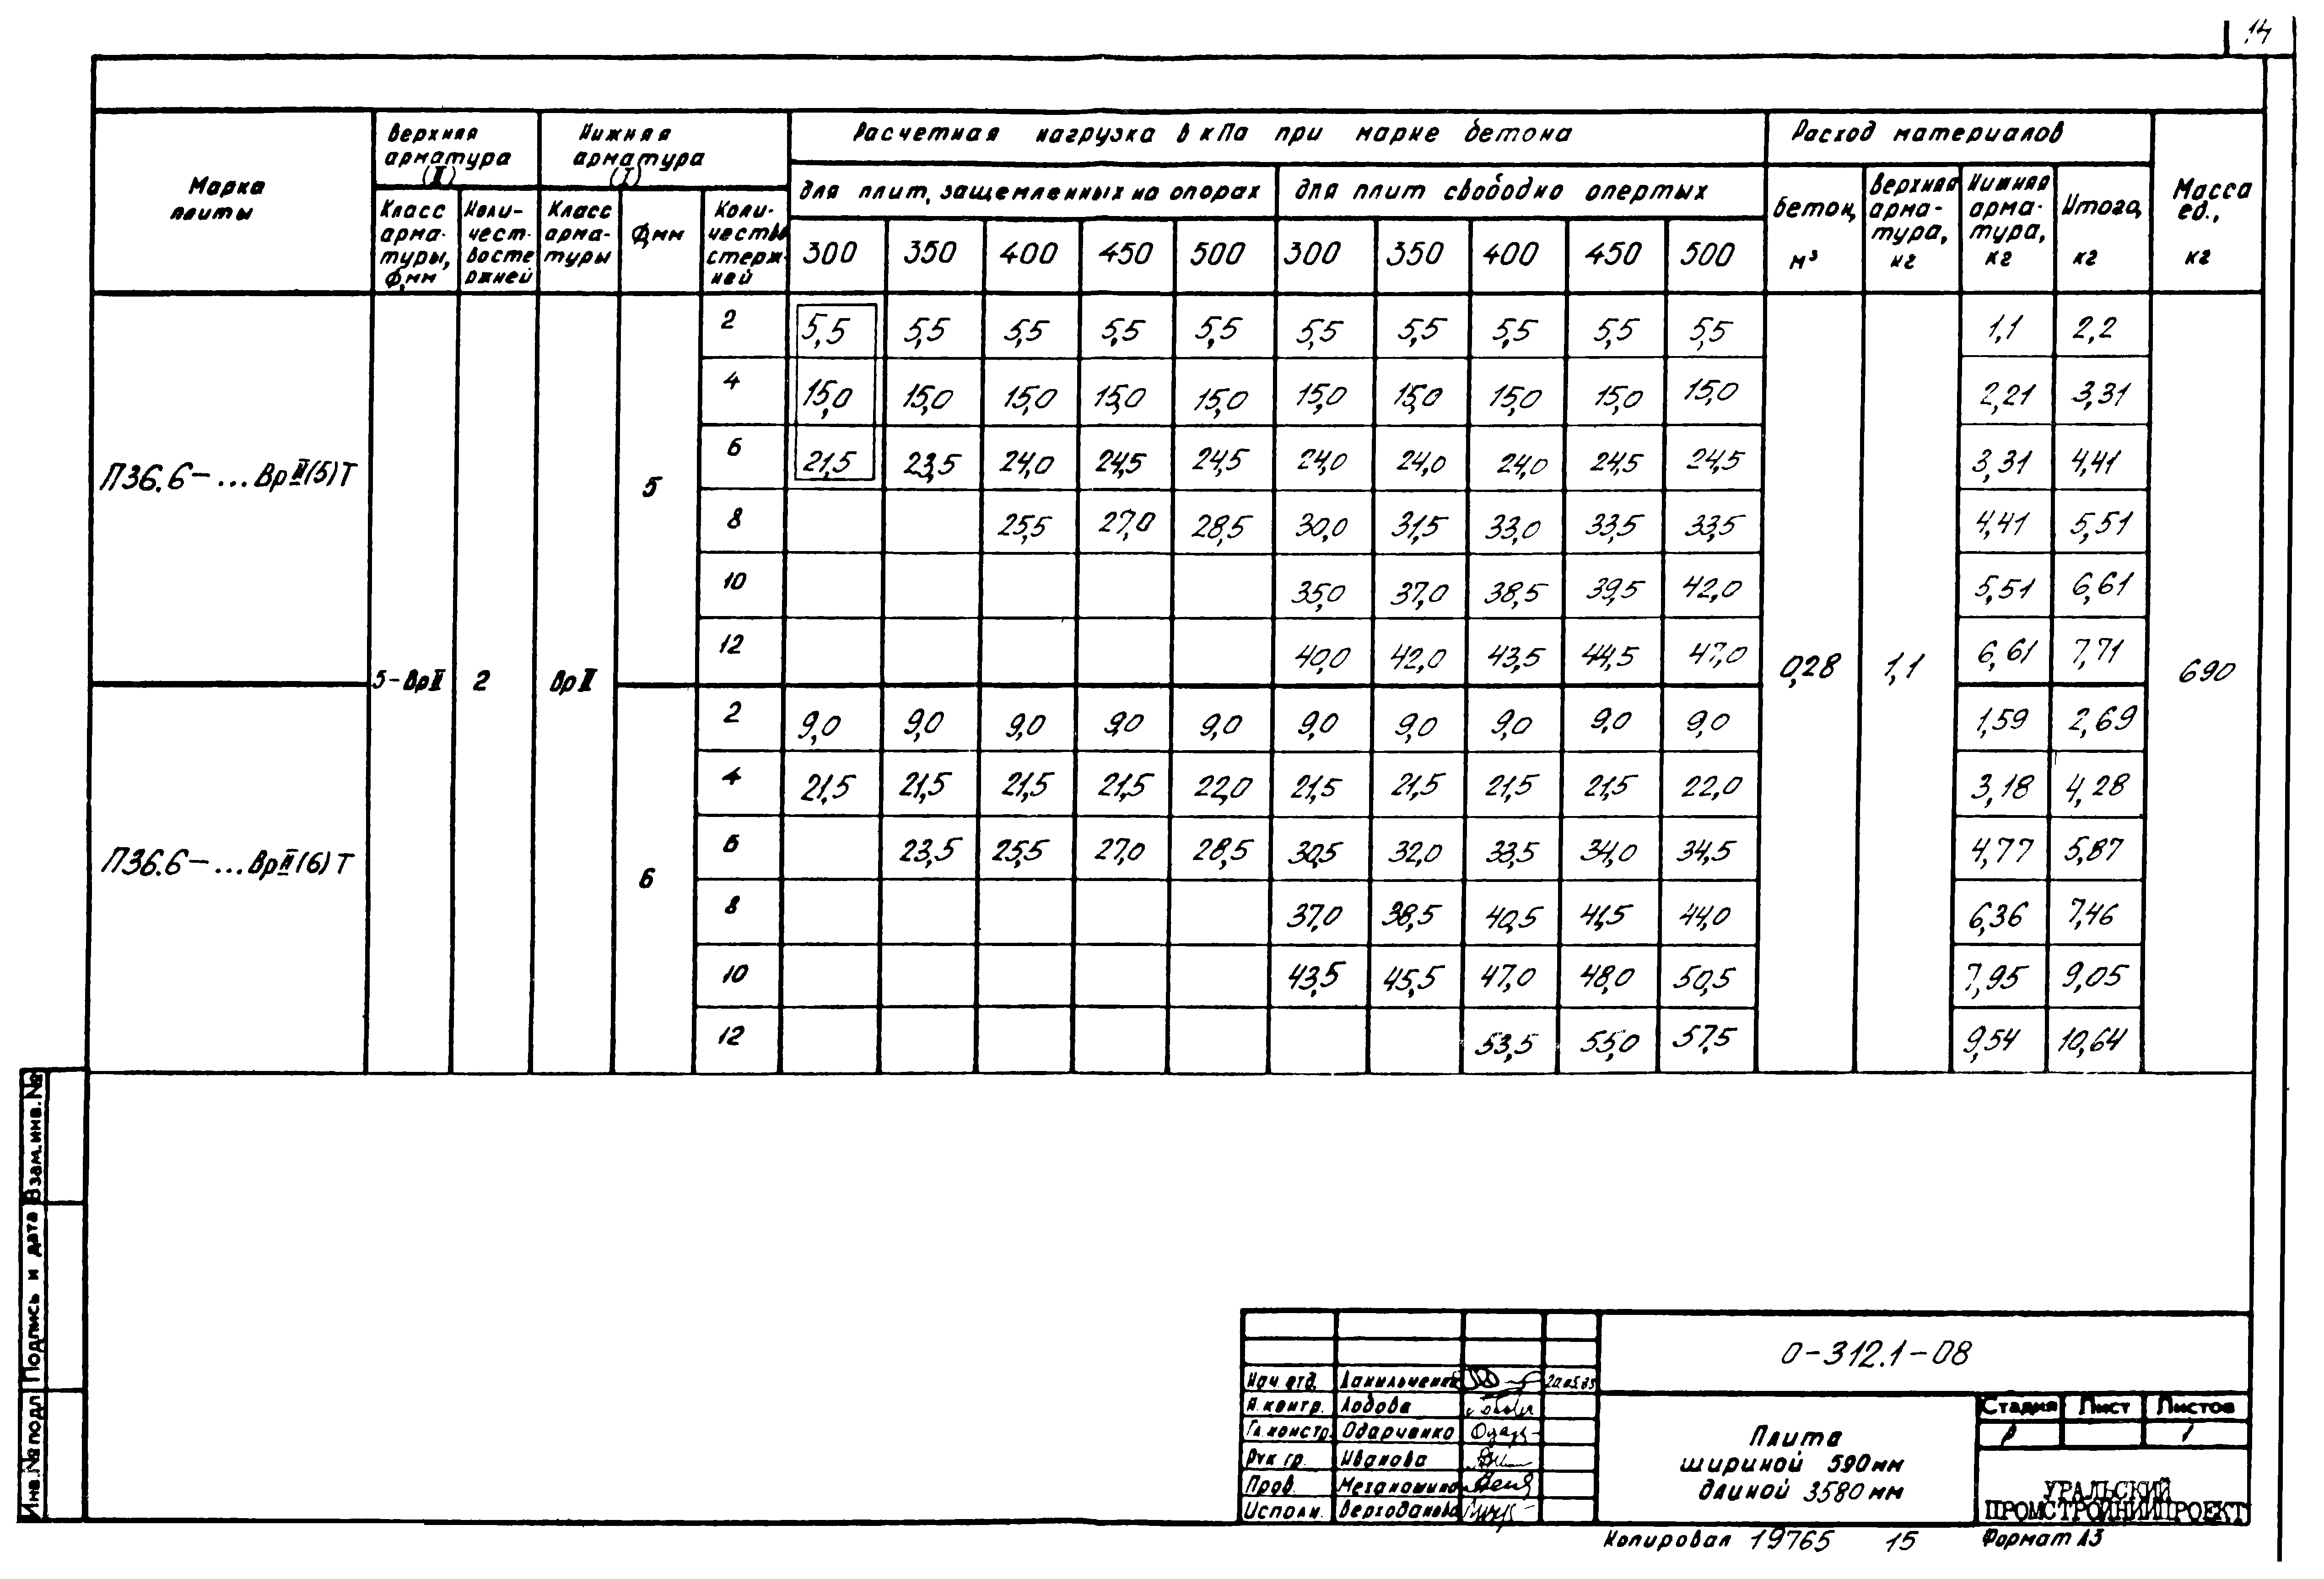 14
Марка плиты
Верхняя арматура (II)
Нижняя арматура (I)
Расчетная нагрузка в кПа при марке бетона
Расход материалов
Масса ед., кг
для плит, защемленных на опорах
для плит свободно опертых
Класс арматуры, Ф, мм
Количество стержней
Класс арматуры
Ф, мм
Количество стержней
300 350 400 450 500 300 350 400 450 500
бетон, м³
Верхняя арматура, кг
Нижняя арматура, кг
Итого, кг
П36.6-...ВрII(5)Т
5-ВрII 2 ВрII 5
2 5,5 5,5 5,5 5,5 5,5 5,5 5,5 5,5 5,5 5,5 1,1 2,2
4 15,0 15,0 15,0 15,0 15,0 15,0 15,0 15,0 15,0 15,0 2,21 3,31
6 21,5 23,5 24,0 24,5 24,5 24,0 24,0 24,0 24,5 24,5 3,31 4,41
8 25,5 27,0 28,5 30,0 31,5 33,0 33,5 33,5 4,41 5,51
10 35,0 37,0 38,5 39,5 42,0 5,51 6,61
12 40,0 42,0 43,5 44,5 47,0 6,61 7,71
0,28 1,1 690
П36.6-...ВрII(6)Т
6
2 9,0 9,0 9,0 9,0 9,0 9,0 9,0 9,0 9,0 9,0 1,59 2,69
4 21,5 21,5 21,5 21,5 22,0 21,5 21,5 21,5 21,5 22,0 3,18 4,28
6 23,5 25,5 27,0 28,5 30,5 32,0 33,5 34,0 34,5 4,77 5,87
8 37,0 38,5 40,5 41,5 44,0 6,36 7,46
10 43,5 45,5 47,0 48,0 50,5 7,95 9,05
12 53,5 55,0 57,5 9,54 10,64
Взам.инв.№
Подпись и дата
Инв.№ подл
0-312.1-08
Нач. отд. Данильченко
Н.контр. Лобова
Гл.констр. Одарченко
Рук гр. Иванова
Пров.
Исполн.
Плита
шириной 590мм
длиной 3580мм
Стадия Лист Листов
Р 1
УРАЛЬСКИЙ
ПРОМСТРОЙНИИПРОЕКТ
Копировал 19765 15 Формат А3